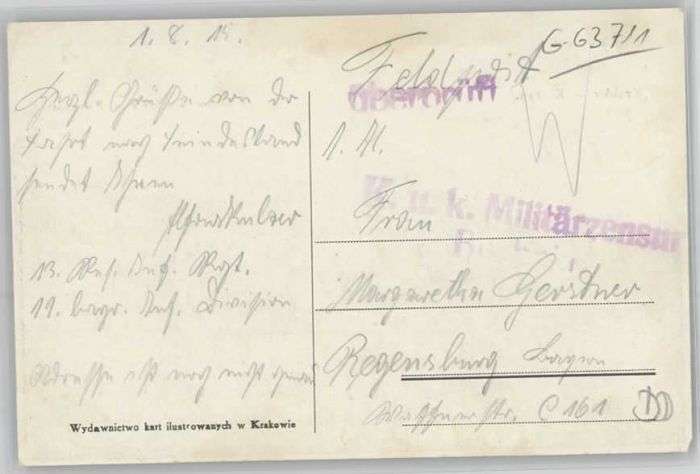 1. 8. 15.
Herzl. Grüße von der
Fahrt nach Feindesland
sendet Ihnen
13. Res. Inf. Regt.
11. bayr. Inf. Division
Adresse ist noch nicht genau
Wydawnictwo kart ilustrowanych w Krakowie
G-63711
Feldpost
überprüft
1. A.
K. u. k. Militärzensur
Frau
Margaretha Gerstner
Regensburg Bayern
C 161